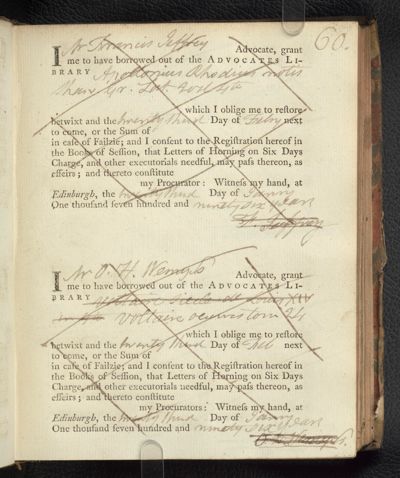 60.
I Mr Francis Jeffrey Advocate, grant
me to have borrowed out of the ADVOCATES LI-
BRARY Apollonius Rhodius notis
Gr. Lat 2 vol 4to
which I oblige me to restore
betwixt and the twenty third Day of next
to come, or the Sum of
in case of Failzie; and I consent to the Registration hereof in
the Books of Session, that Letters of Horning on Six Days
Charge, and other executorials needful, may pass thereon, as
effeirs; and thereto constitute
my Procurator: Witness my hand, at
Edinburgh, the twenty third Day of
One thousand seven hundred and ninety six years
F. Jeffrey
I Mr Wemyss Advocate, grant
me to have borrowed out of the ADVOCATES LI-
BRARY Voltaire Siecle de Louis XIV
Voltaire oeuvres tom 24
which I oblige me to restore
betwixt and the twenty third Day of Feb. next
to come, or the Sum of
in case of Failzie; and I consent to the Registration hereof in
the Books of Session, that Letters of Horning on Six Days
Charge, and other executorials needful, may pass thereon, as
effeirs; and thereto constitute
my Procurators: Witness my hand, at
Edinburgh, the twenty third Day of
One thousand seven hundred and ninety six years